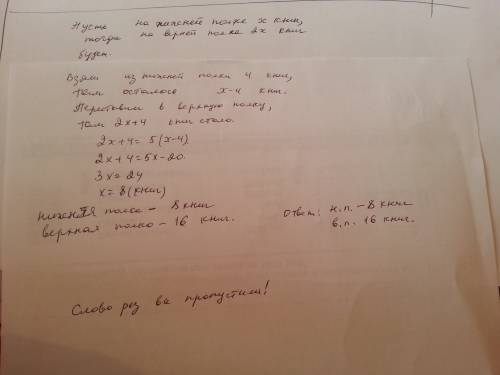 Пусть на нижней полке x книг,
тогда на верхней полке 2x книг
будет.
Взяли из нижней полки 4 книг,
там осталось x-4 книг.
Переставили в верхнюю полку,
там 2x+4 книг стало.
2x+4=5(x-4)
2x+4=5x-20
3x=24
x=8(книг)
нижняя полка - 8 книг
верхная полка - 16 книг.
Ответ: н.п. - 8 книг
в.п. 16 книг.
Слово раз вы пропустили!